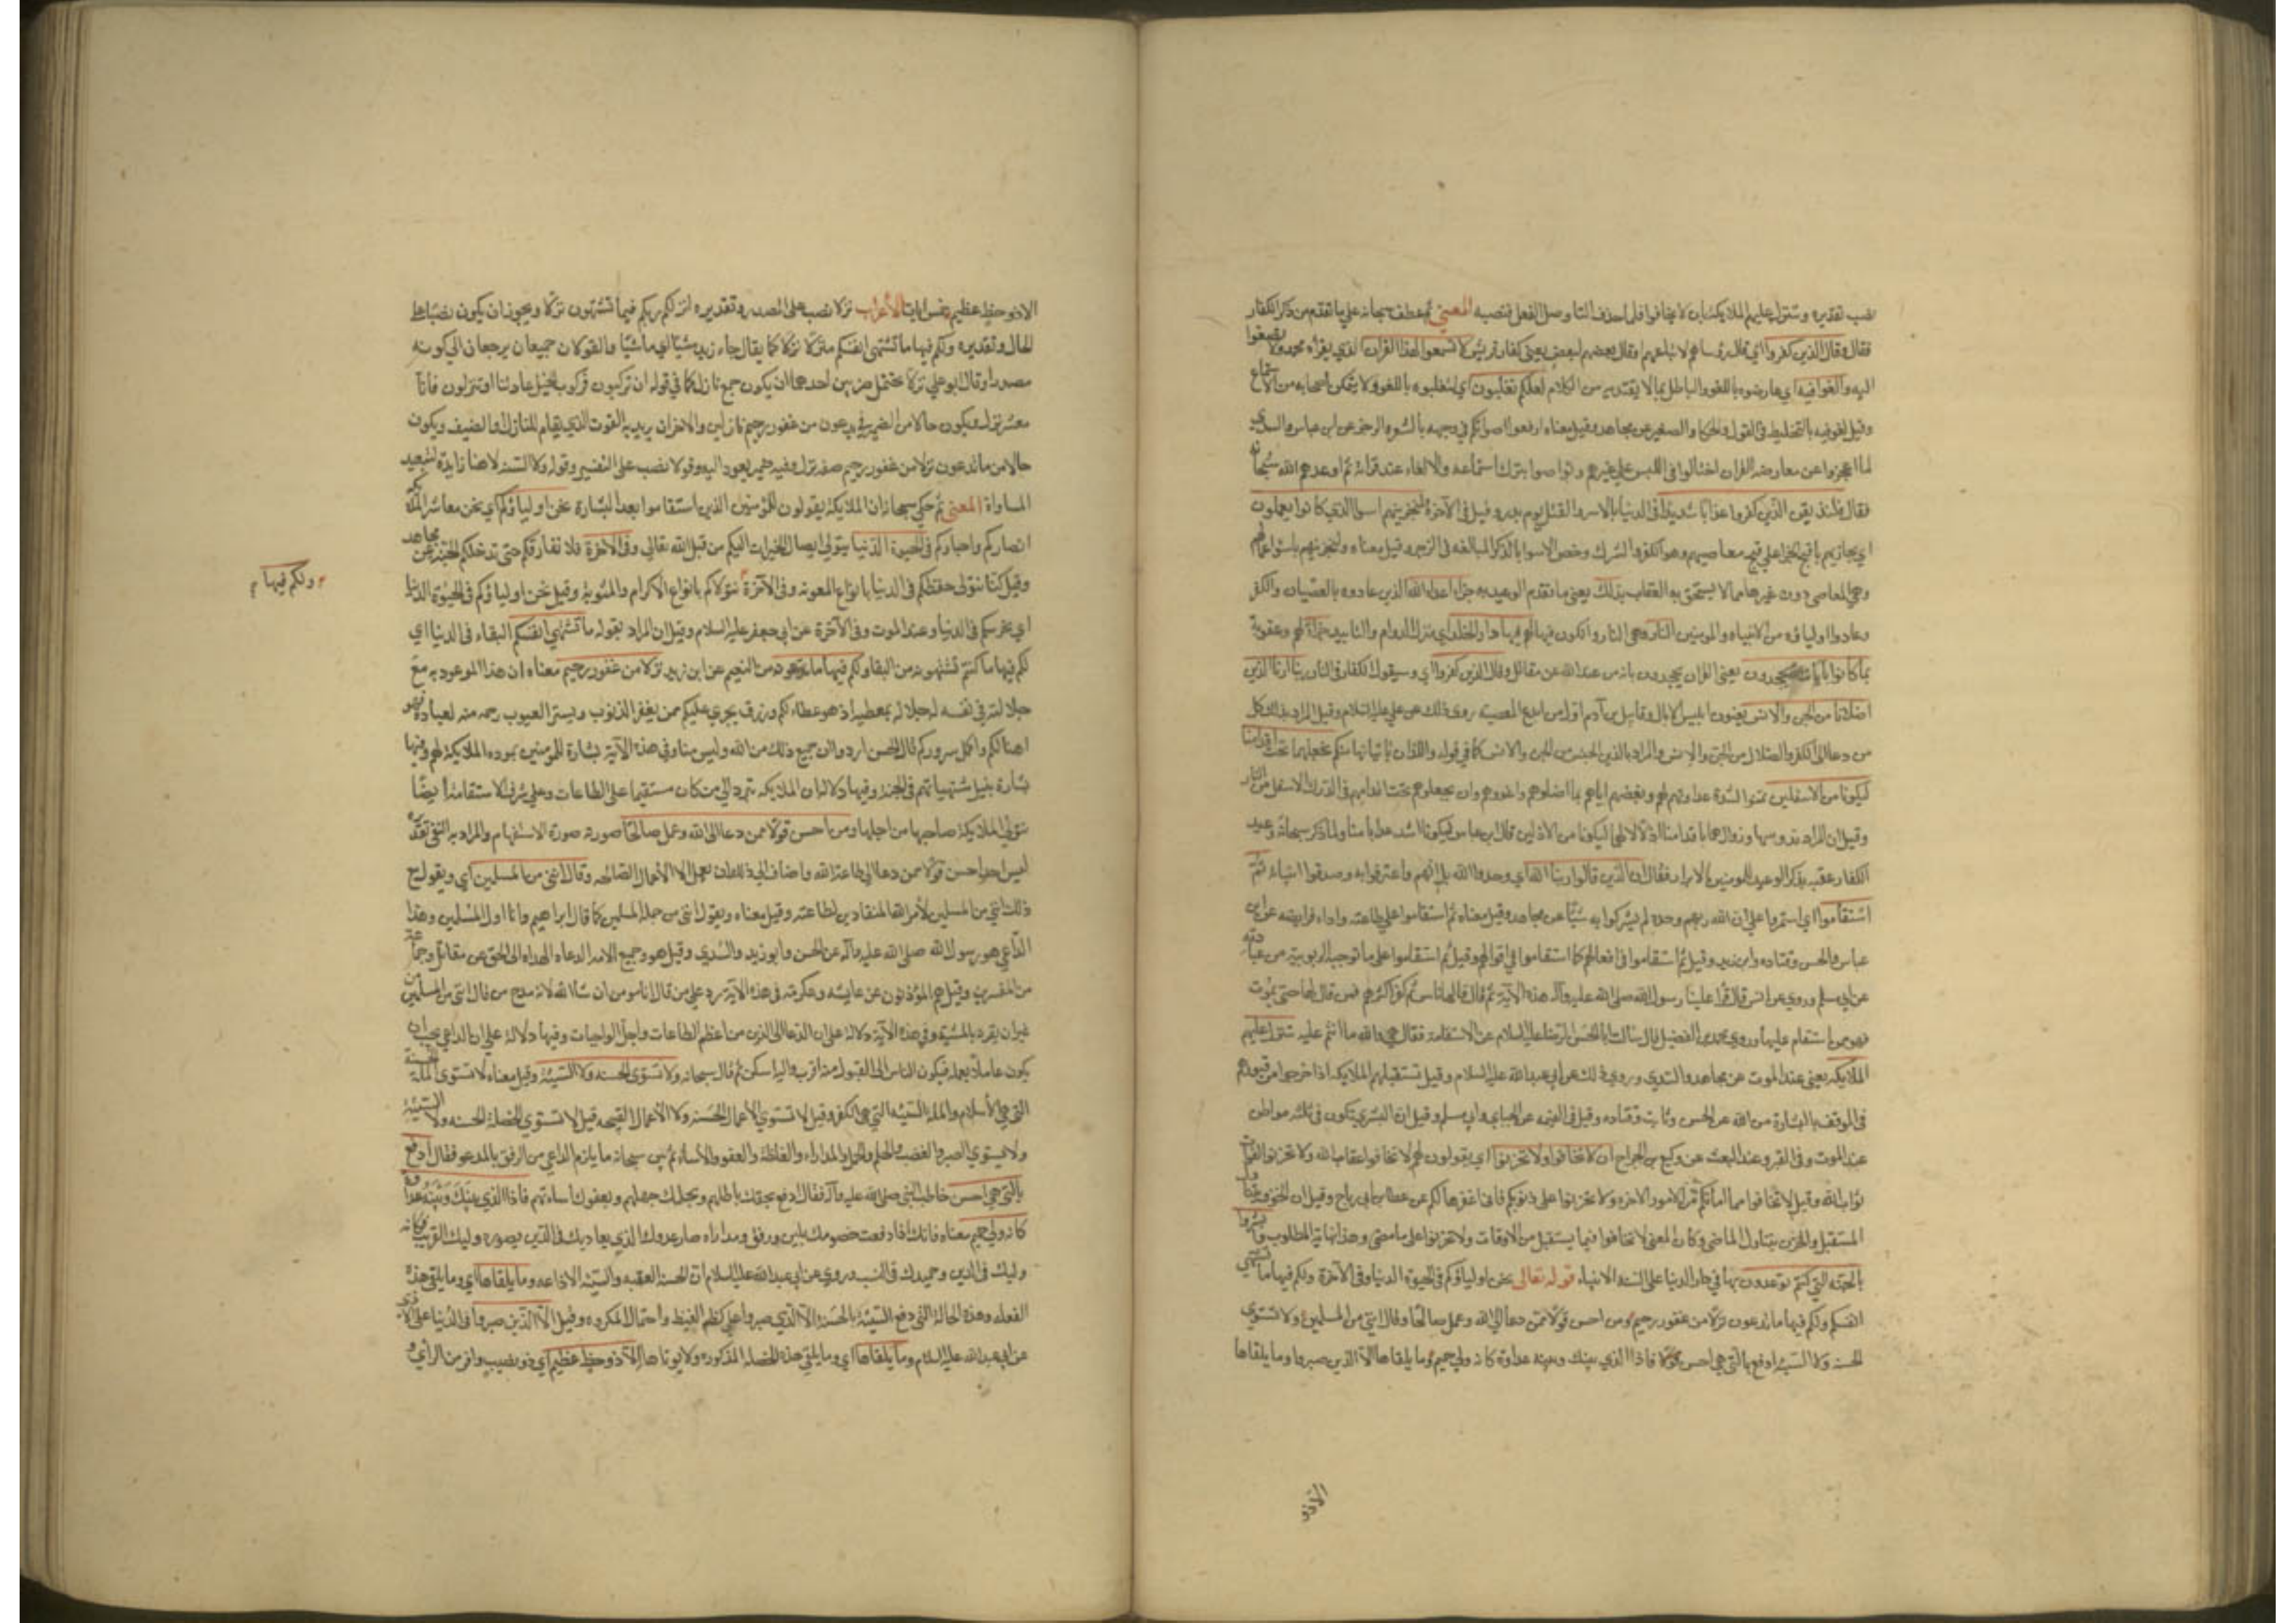 نصب تقديره وتتنزل عليهم الملايكة بان لا يخافوا فلما حذف التا وصل الفعل فنصبه المعني ثم عطف سبحانه علي ما تقدم من ذكر الكفار
فقال وقال الذين كفروا اي قال رؤساهم لاتباعهم او قال بعضهم لبعض يعني كفار قريش لا تسمعوا لهذا القران الذي يقرأه محمد ولا تصغوا
اليه والغوا فيه اي عارضوه باللغو والباطل بما لا يعتد به من الكلام لعلكم تغلبون اي لتغلبوه باللغو ولا يتمكن اصحابه من الاستماع
وقيل الغوا فيه بالتخليط في القول والمكا والصفير عن مجاهد وقيل معناه ارفعوا اصواتكم في وجهه بالشعر والرجز عن ابن عباس والسدي
لما عجزوا عن معارضة القران احتالوا في اللبس علي غيرهم وتواصوا بترك استماعه والالغاء عند قرائته ثم اوعدهم الله سبحانه
فقال فلنذيقن الذين كفروا عذابا شديدا في الدنيا بالاسر والقتل يوم بدر وقيل في الآخرة ولنجزينهم اسوا الذي كانوا يعملون
اي يجازيهم باقبح الجزا علي قبح معاصيهم وهو الكفر والشرك وخص الاسوا بالذكر للمبالغة في الزجر وقيل معناه ولنجزينهم باسوا اعمالهم
وهي المعاصي دون غيرها مما لا يستحق به العقاب ذلك يعني ما تقدم الوعيد به جزا اعداء الله الذين عادوه بالعصيان والكفر
وعادوا اولياؤه من الانبياء والمومنين النار وهي النار والكون فيها لهم فيها دار الخلد اي منزل الدوام والتابيد جزاء لهم وعقوبة
بما كانوا باياتنا يجحدون يعني القران يجحدون بانه من عند الله عن مقاتل وقال الذين كفروا اي وسيقول الكفار في النار ربنا ارنا الذين
اضلانا من الجن والانس يعنون ابليس الابالسة وقابيل بن آدم اول من ابدع المعصية روي ذلك عن علي عليه السلام وقيل المراد بذلك كل
من دعا الي الكفر والضلال من الجن والانس والمراد بالذين الجنس من الجن والانس كما في قوله واللذان ياتيانها منكم نجعلهما تحت اقدامنا
ليكونا من الاسفلين تمنوا لشدة عداوتهم لهم وبغضهم اياهم بما اضلوهم واغووهم وان يجعلوهم تحت اقدامهم في الدرك الاسفل من النار
وقيل ان المراد ندوسهما ونذلهما باقدامنا اذلالا لهما ليكونا من الاذلين قال ابن عباس ليكونا اشد عذابا منا ولما ذكر سبحانه وعيد
الكفار عقبه بذكر الوعيد للمومنين الابرار فقال ان الذين قالوا ربنا الله اي وحدوا الله بلسانهم واعترفوا به وصدقوا انبياءه ثم
استقاموا اي استمروا علي ان الله ربهم وحده لم يشركوا به شيئا عن مجاهد وقيل معناه ثم استقاموا علي طاعته واداء فرايضه عن ابن
عباس والحسن وقتاده وابن زيد وقيل ثم استقاموا في افعالهم كما استقاموا في اقوالهم وقيل ثم استقاموا علي ما توجبه الربوبية من عبادته
عن ابي مسلم وروي عن انس قال قرأ علينا رسول الله صلي الله عليه وآله هذه الآية ثم قال قد قالها ناس ثم كفر اكثرهم فمن قال لها حتي يموت
فهو ممن استقام عليها وروي محمد بن الفضيل قال سالت ابا الحسن الرضا عليه السلام عن الاستقامة فقال هي والله ما انتم عليه تتنزل عليهم
الملايكة يعني عند الموت عن مجاهد والسدي وروي ذلك عن ابي عبد الله عليه السلام وقيل تستقبلهم الملايكة اذا خرجوا من قبورهم
في الموقف بالبشارة من الله عن الحسن وثابت وقتاده وقيل في القيمه عن الجباي وابي مسلم وقيل ان البشري تكون في ثلثة مواطن
عند الموت وفي القبر وعند البعث عن وكيع بن الجراح ان لا تخافوا ولا تحزنوا اي يقولون لهم لا تخافوا عقاب الله ولا تحزنوا لفوات
ثواب الله وقيل لا تخافوا مما امامكم من الامور الاخرة ولا تحزنوا علي ذنوبكم فاني اغفرها لكم عن عطا بن ابي رباح وقيل ان الخوف يتناول
المستقبل والحزن يتناول الماضي وكان المعني لا تخافوا فيما يستقبل من الاوقات ولا تحزنوا علي ما مضي وهذا نهاية المطلوب وابشروا
بالجنة التي كنتم توعدون بها في دار الدنيا علي السنة الانبياء قوله تعالي نحن اولياؤكم في الحيوة الدنيا وفي الآخرة ولكم فيها ما تشتهي
انفسكم ولكم فيها ما تدعون نزلا من غفور رحيم ومن احسن قولا ممن دعا الي الله وعمل صالحا وقال انني من المسلمين ولا تستوي
الحسنة ولا السيئة ادفع بالتي هي احسن فاذا الذي بينك وبينه عداوة كانه ولي حميم وما يلقاها الا الذين صبروا وما يلقاها
الا ذو
الا ذو حظ عظيم خمس ايات الأعراب نزلا نصب علي المصدر وتقديره انزلكم ربكم فيما تشتهون نزلا ويجوز ان يكون نصبا علي
الحال وتقديره ولكم فيها ما تشتهي انفسكم منزلا نزلا كما يقال جاء زيد مشيا اي ماشيا والقولان جميعا يرجعان الي كونه
مصدرا وقال ابو علي نزلا يحتمل ضربين احدهما ان يكون جمع نازل كما في قوله ان تركبون فركوب الخيل عادتنا او تنزلون فانا
معشر نزل ويكون حالا من الضمير في يدعون من غفور رحيم نازلين والاخر ان يريد به القوت الذي يقام للنازل او الضيف ويكون
حالا من ما تدعون نزلا من غفور رحيم صفة نزل وفيه ضمير يعود اليه وقولا نصب علي التفسير وقوله ولا السيئة لا هنا زايدة لتبعيد
المساواة المعني ثم حكي سبحانه ان الملايكة يقولون للمؤمنين الذين استقاموا بعد البشارة نحن اولياؤكم اي نحن معاشر الملايكة
انصاركم واحباركم في الحيوة الدنيا يتولي ايصال الخيرات اليكم من قبل الله تعالي وفي الآخرة فلا نفارقكم حتي ندخلكم الجنة عن مجاهد
وقيل كنا نتولي حفظكم في الدنيا بانواع المعونة وفي الآخرة نتولاكم بانواع الاكرام والمثوبة وقيل نحن اولياؤكم في الحيوة الدنيا
ولكم فيها
اي نحرسكم في الدنيا وعند الموت وفي الآخرة عن ابي جعفر عليه السلام وقيل ان المراد بقوله ما تشتهي انفسكم البقاء في الدنيا اي
لكم فيها ما كنتم تشتهونه من البقا ولكم فيها ما تدعون من النعيم عن ابن زيد نزلا من غفور رحيم معناه ان هذا الموعود به مع
جلالته في نفسه له جلاله بمعطيه اذ هو عطاء لكم ورزق يجري عليكم ممن يغفر الذنوب ويستر العيوب رحمة منه لعباده فهو
اهنا لكم واكمل سروركم قال الحسن ارادوا ان جميع ذلك من الله وليس منا وفي هذه الآية بشارة للمومنين بموده الملايكة لهم وفيها
بشارة بنيل مشتهياتهم في الجنة وفيها دلالة ان الملايكة تتردد الي من كان مستقيما علي الطاعات وعلي شرف الاستقامة ايضا
تتولي الملايكة صاحبها من اجلها ومن احسن قولا ممن دعا الي الله وعمل صالحا صورته صورة الاستفهام والمراد به النفي تقديره
ليس احد احسن قولا ممن دعا الي طاعة الله واضاف الي ذلك ان يعمل الاعمال الصالحة وقال انني من المسلمين اي ويقول مع
ذلك انني من المسلمين لأمر الله المنقادين لطاعته وقيل معناه ويقول انني من جملة المسلمين كما قال ابراهيم وانا اول المسلمين وهذا
الداعي هو رسول الله صلي الله عليه وآله عن الحسن وابن زيد والسدي وقيل هو وجميع الائمه الدعاه الهداه الي الحق عن مقاتل وجماعة
من المفسرين وقيل هم المؤذنون عن عايشه وعكرمة في هذه الآية رد علي من قال انا مومن ان شا الله لانه مدح من قال انني من المسلمين
غير ان يقرنه بالمشية وفي هذه الآية دلالة علي ان الدعا الي الدين من اعظم الطاعات واجل الواجبات وفيها دلالة علي ان الداعي يجب ان
يكون عاملا بعلمه ليكون الناس الي القبول منه اقرب واليه اسكن ثم قال سبحانه ولا تستوي الحسنة ولا السيئة وقيل معناه لا تستوي الملة الحسنة
التي هي الأسلام والملة السيئة التي هي الكفر وقيل لا تستوي الأعمال الحسنة ولا الأعمال القبيحه قيل لا تستوي الخصلة الحسنه ولا السيئة
ولا يستوي الصبر والغضب والحلم والجهل والمداراه والغلظة والعفو والأساءة ثم بين سبحانه ما يلزم الداعي من الرفق بالمدعو فقال ادفع
بالتي هي احسن خاطب النبي صلي الله عليه وآله فقال ادفع بحقك باطلهم وبحلمك جهلهم وبعفوك اساءتهم فاذا الذي بينك وبينه عداوة
كانه ولي حميم معناه فانك اذا دفعت خصومك بلين ورفق ومداراه صار عدوك الذي يعاديك في الدين بصورة وليك القريب فكانه
وليك في الدين وحميمك في النسب وروي عن ابي عبد الله عليه السلام ان الحسنة التقيه والسيئة الاذاعه وما يلقاها اي وما يلقي هذه
الفعلة وهذة الحالة التي دفع السيئة بالحسنة الا الذين صبروا علي كظم الغيظ واحتمال المكروه وقيل الا الذين صبروا في الدنيا علي الاذي
عن ابي عبد الله عليه السلام وما يلقاها اي وما يلقي هذه الخصلة المذكورة ولا يوتاها الا ذو حظ عظيم اي ذو نصيب وافر من الرأي و